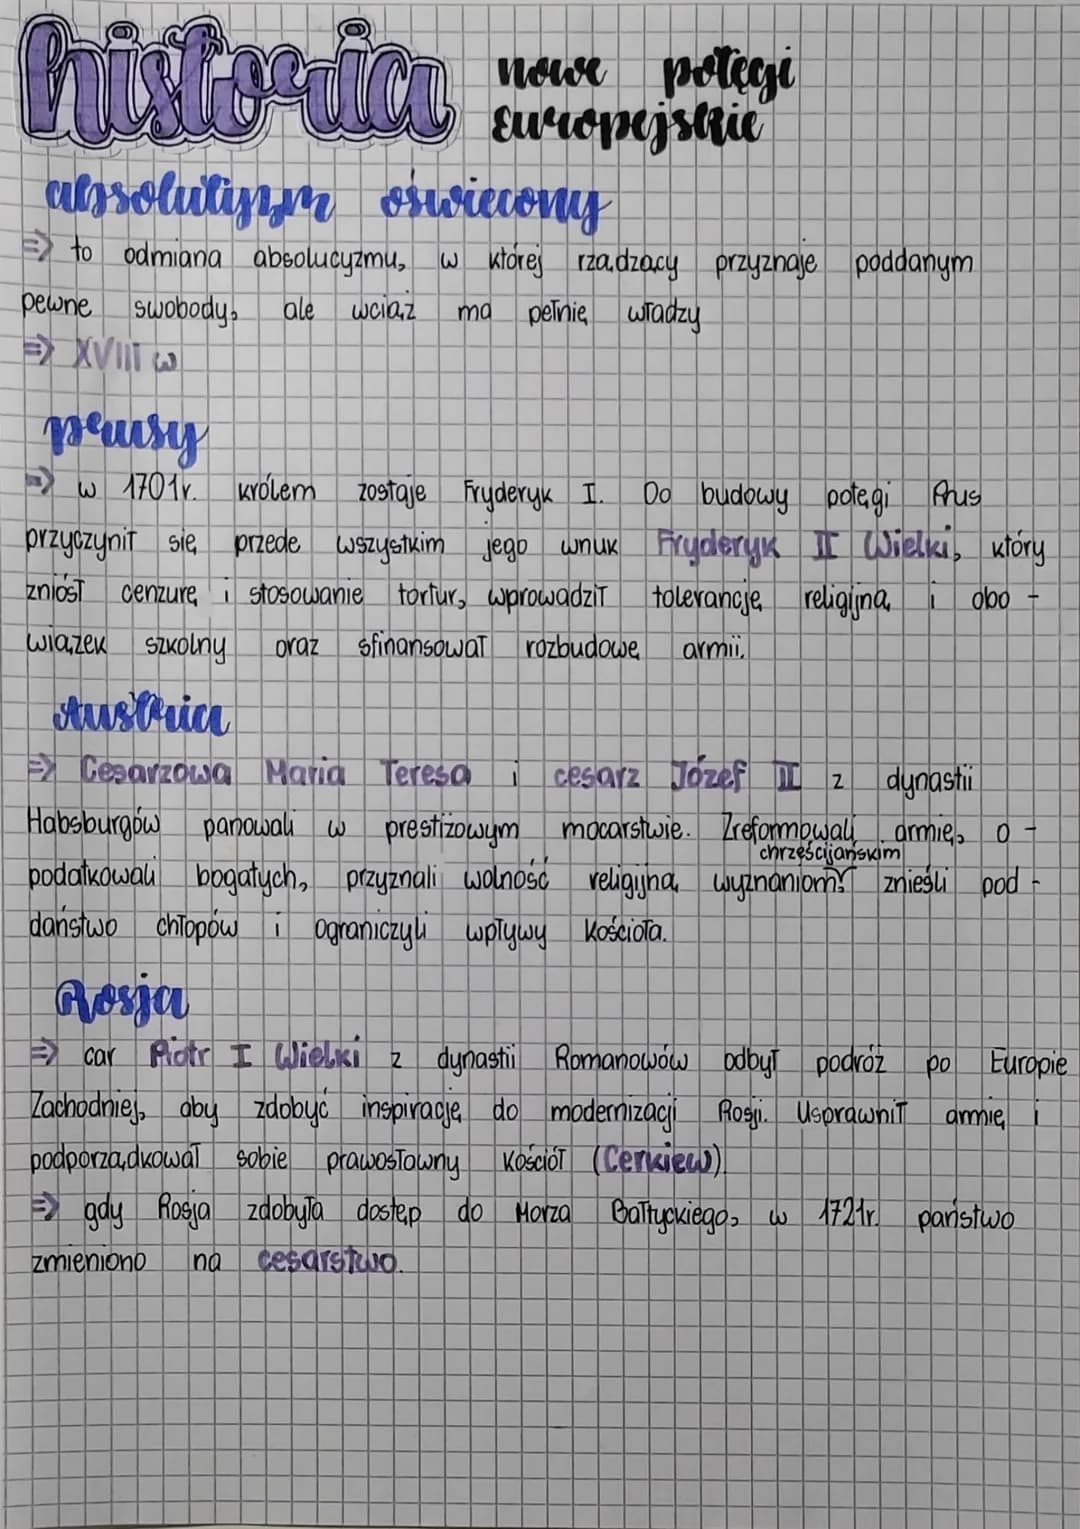 historia
nowe potęgi
Europejskie
absolutyzm oświecony
=> to odmiana absolucyzmu, w której rządzący przyznaje poddanym
pewne swobody, ale wciąż ma pełnię władzy
=> XVIII w
prusy
=> w 1701r. królem zostaje Fryderyk I. Do budowy potęgi Prus
przyczynił się przede wszystkim jego wnuk Fryderyk II Wielki, który
zniósł cenzurę i stosowanie tortur, wprowadził tolerancję religijną i obo-
wiązek szkolny oraz sfinansował rozbudowę armii.
Austria
=> Cesarzowa Maria Teresa i cesarz Józef II z dynastii
Habsburgów panowali w prestiżowym mocarstwie. Zreformowali armię, o-
chrześcijańskim
podatkowali bogatych, przyznali wolność religijną wyznaniom, znieśli pod-
daństwo chłopów i ograniczyli wpływy Kościoła.
Rosja
=> car Piotr I Wielki z dynastii Romanowów odbył podróż po Europie
Zachodniej, aby zdobyć inspirację do modernizacji Rosji. Usprawnił armię i
podporządkował sobie prawosławny Kościół (Cerkiew)
=> gdy Rosja zdobyła dostęp do Morza Bałtyckiego, w 1721r. państwo
zmieniono na cesarstwo.